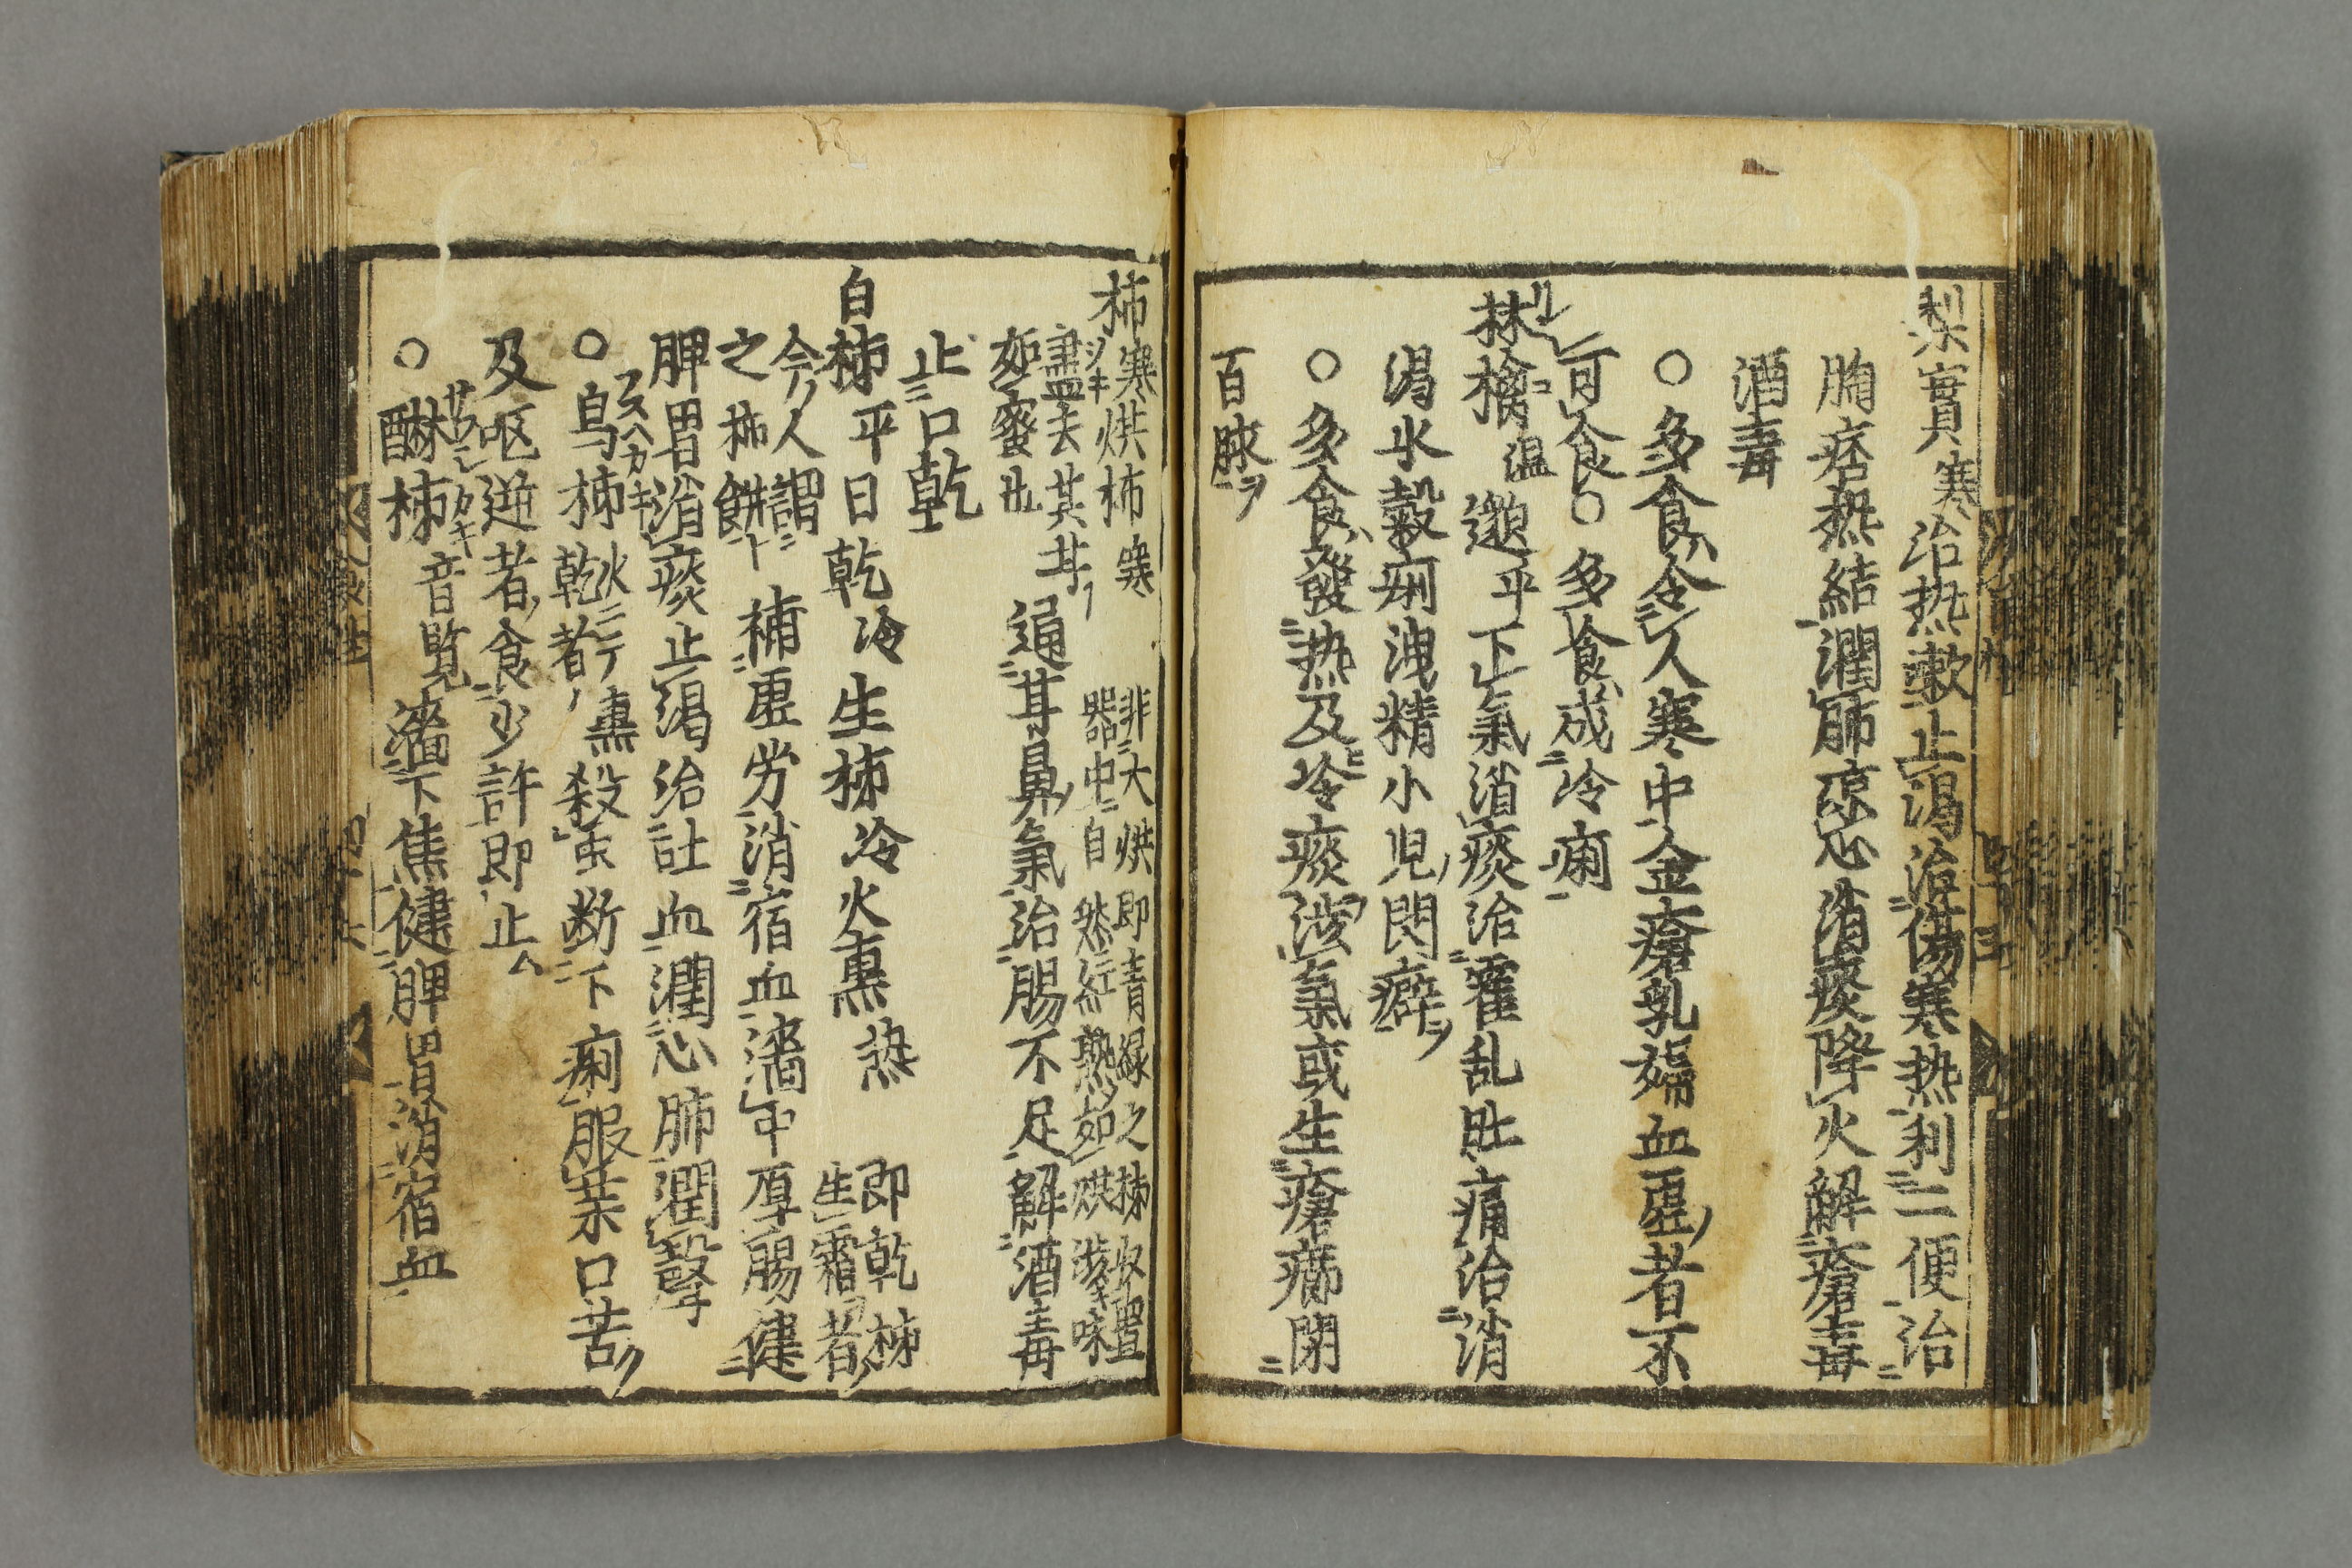 梨實寒治热嗽止渇治傷寒热利二便治
胸痞热結潤肺凉心消痰降火解瘡毒
酒毒
○多食令人寒中金瘡乳婦血虚者不
可食○多食成冷痢
林檎温 平下氣消痰治霍乱肚痛治消
渇水穀痢洩精小児閃癖ヲ
○多食發热及冷痰澁氣或生瘡癤閉
百脉ヲ
柿寒烘柿寒
非大烘即青緑之柹収置
器中自然紅熟如烘澁味
盡去其甘
如蜜也
通耳鼻氣治腸不足解酒毒
止口乾
白柹平日乾冷生柹冷火熏热
即乾柹
生霜者
今ノ人謂
之柿餅ト
補虚労消宿血濇中厚腸健
脾胃消痰止渇治吐血潤心肺潤聲
○烏柹火ニテ
乾者熏殺虫断下痢服薬口苦
及呕逆者食少許即止
○醂柹音覧濇下焦健脾胃消宿血